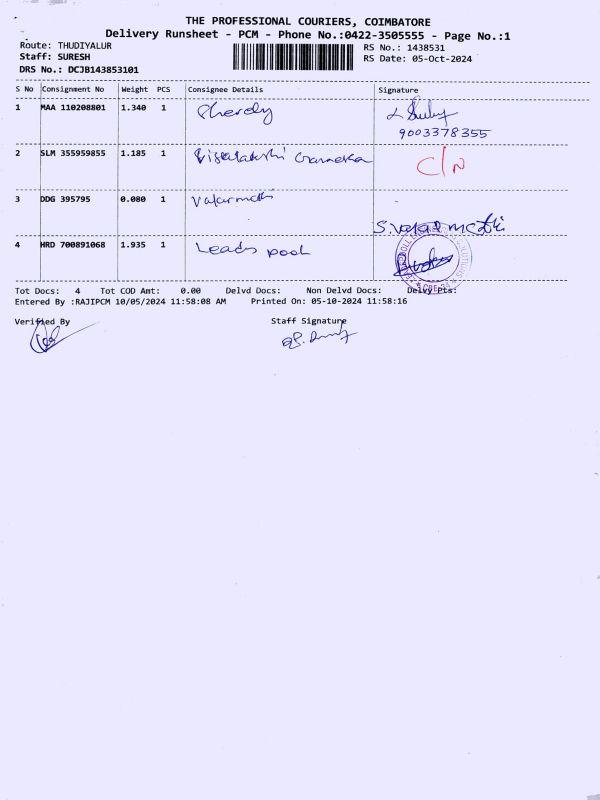 THE PROFESSIONAL COURIERS, COIMBATORE
Delivery Runsheet - PCM - Phone No.:0422-3505555 - Page No.:1
Route: THUDIYALUR
Staff: SURESH
DRS No.: DCJB143853101
RS No.: 1438531
RS Date: 05-Oct-2024
S No Consignment No Weight PCS Consignee Details Signature
1 MAA 110208801 1.340 1
9003378355
2 SLM 355959855 1.185 1 C/N
3 DDG 395795 0.080 1 Valarmathi
S.Valarmathi
4 HRD 700891068 1.935 1 Leads pool
Tot Docs: 4 Tot COD Amt: 0.00 Delvd Docs: Non Delvd Docs: Delvy Pts:
Entered By :RAJIPCM 10/05/2024 11:58:08 AM Printed On: 05-10-2024 11:58:16
Verified By Staff Signature